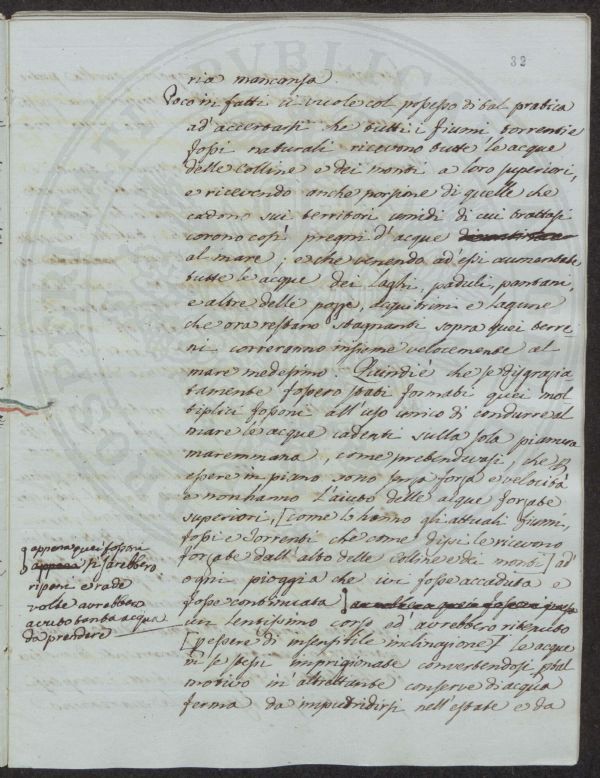 32
ria mancanza.
Poco in fatti ci vuole col possesso di tal pratica
ad accertarsi che tutti i fiumi torrenti e
fossi naturali ricevono tutte le acque
delle Colline e dei monti a loro superiori,
e ricevendo anche porzione di quelle che
cadono sui territori umidi di cui trattasi
corono così pregni d'acque
al mare; e che venendo ad essi aumentate
tutte le acque dei laghi, paduli, pantani,
e altre delle pozze, aquitrini e lagune
che ora restano stagnanti sopra quei terre-
ni correranno insieme velocemente al
mare medesimo. Quindi è che se disgrazia-
tamente fossero stati formati quei mol-
tiplici fossoni all'uso unico di condurre al
mare le acque cadenti sulla sola pianura
maremmana, come pretendevasi, che
essere in piano sono senza forza e velocità
e non hanno l'aiuto delle acque forzate
superiori, [come lo hanno gli attuali fiumi,
fossi e torrenti che come dissi le ricevono
forzate dall'alto delle colline e dei monti] ad
ogni pioggia che ivi fosse accaduta e
fosse continuata
appena quei fossoni
si sarebbero
ripieni e rade
volte avrebbero
avuto tanta acqua
da prendere
un lentissimo corso ed avrebbero ritenuto
[per essere di insensibile inclinazione] le acque
in se stessi imprigionate convertendosi
motivo in altrettante conserve di acqua
ferma da imputridirsi nell'estate e da